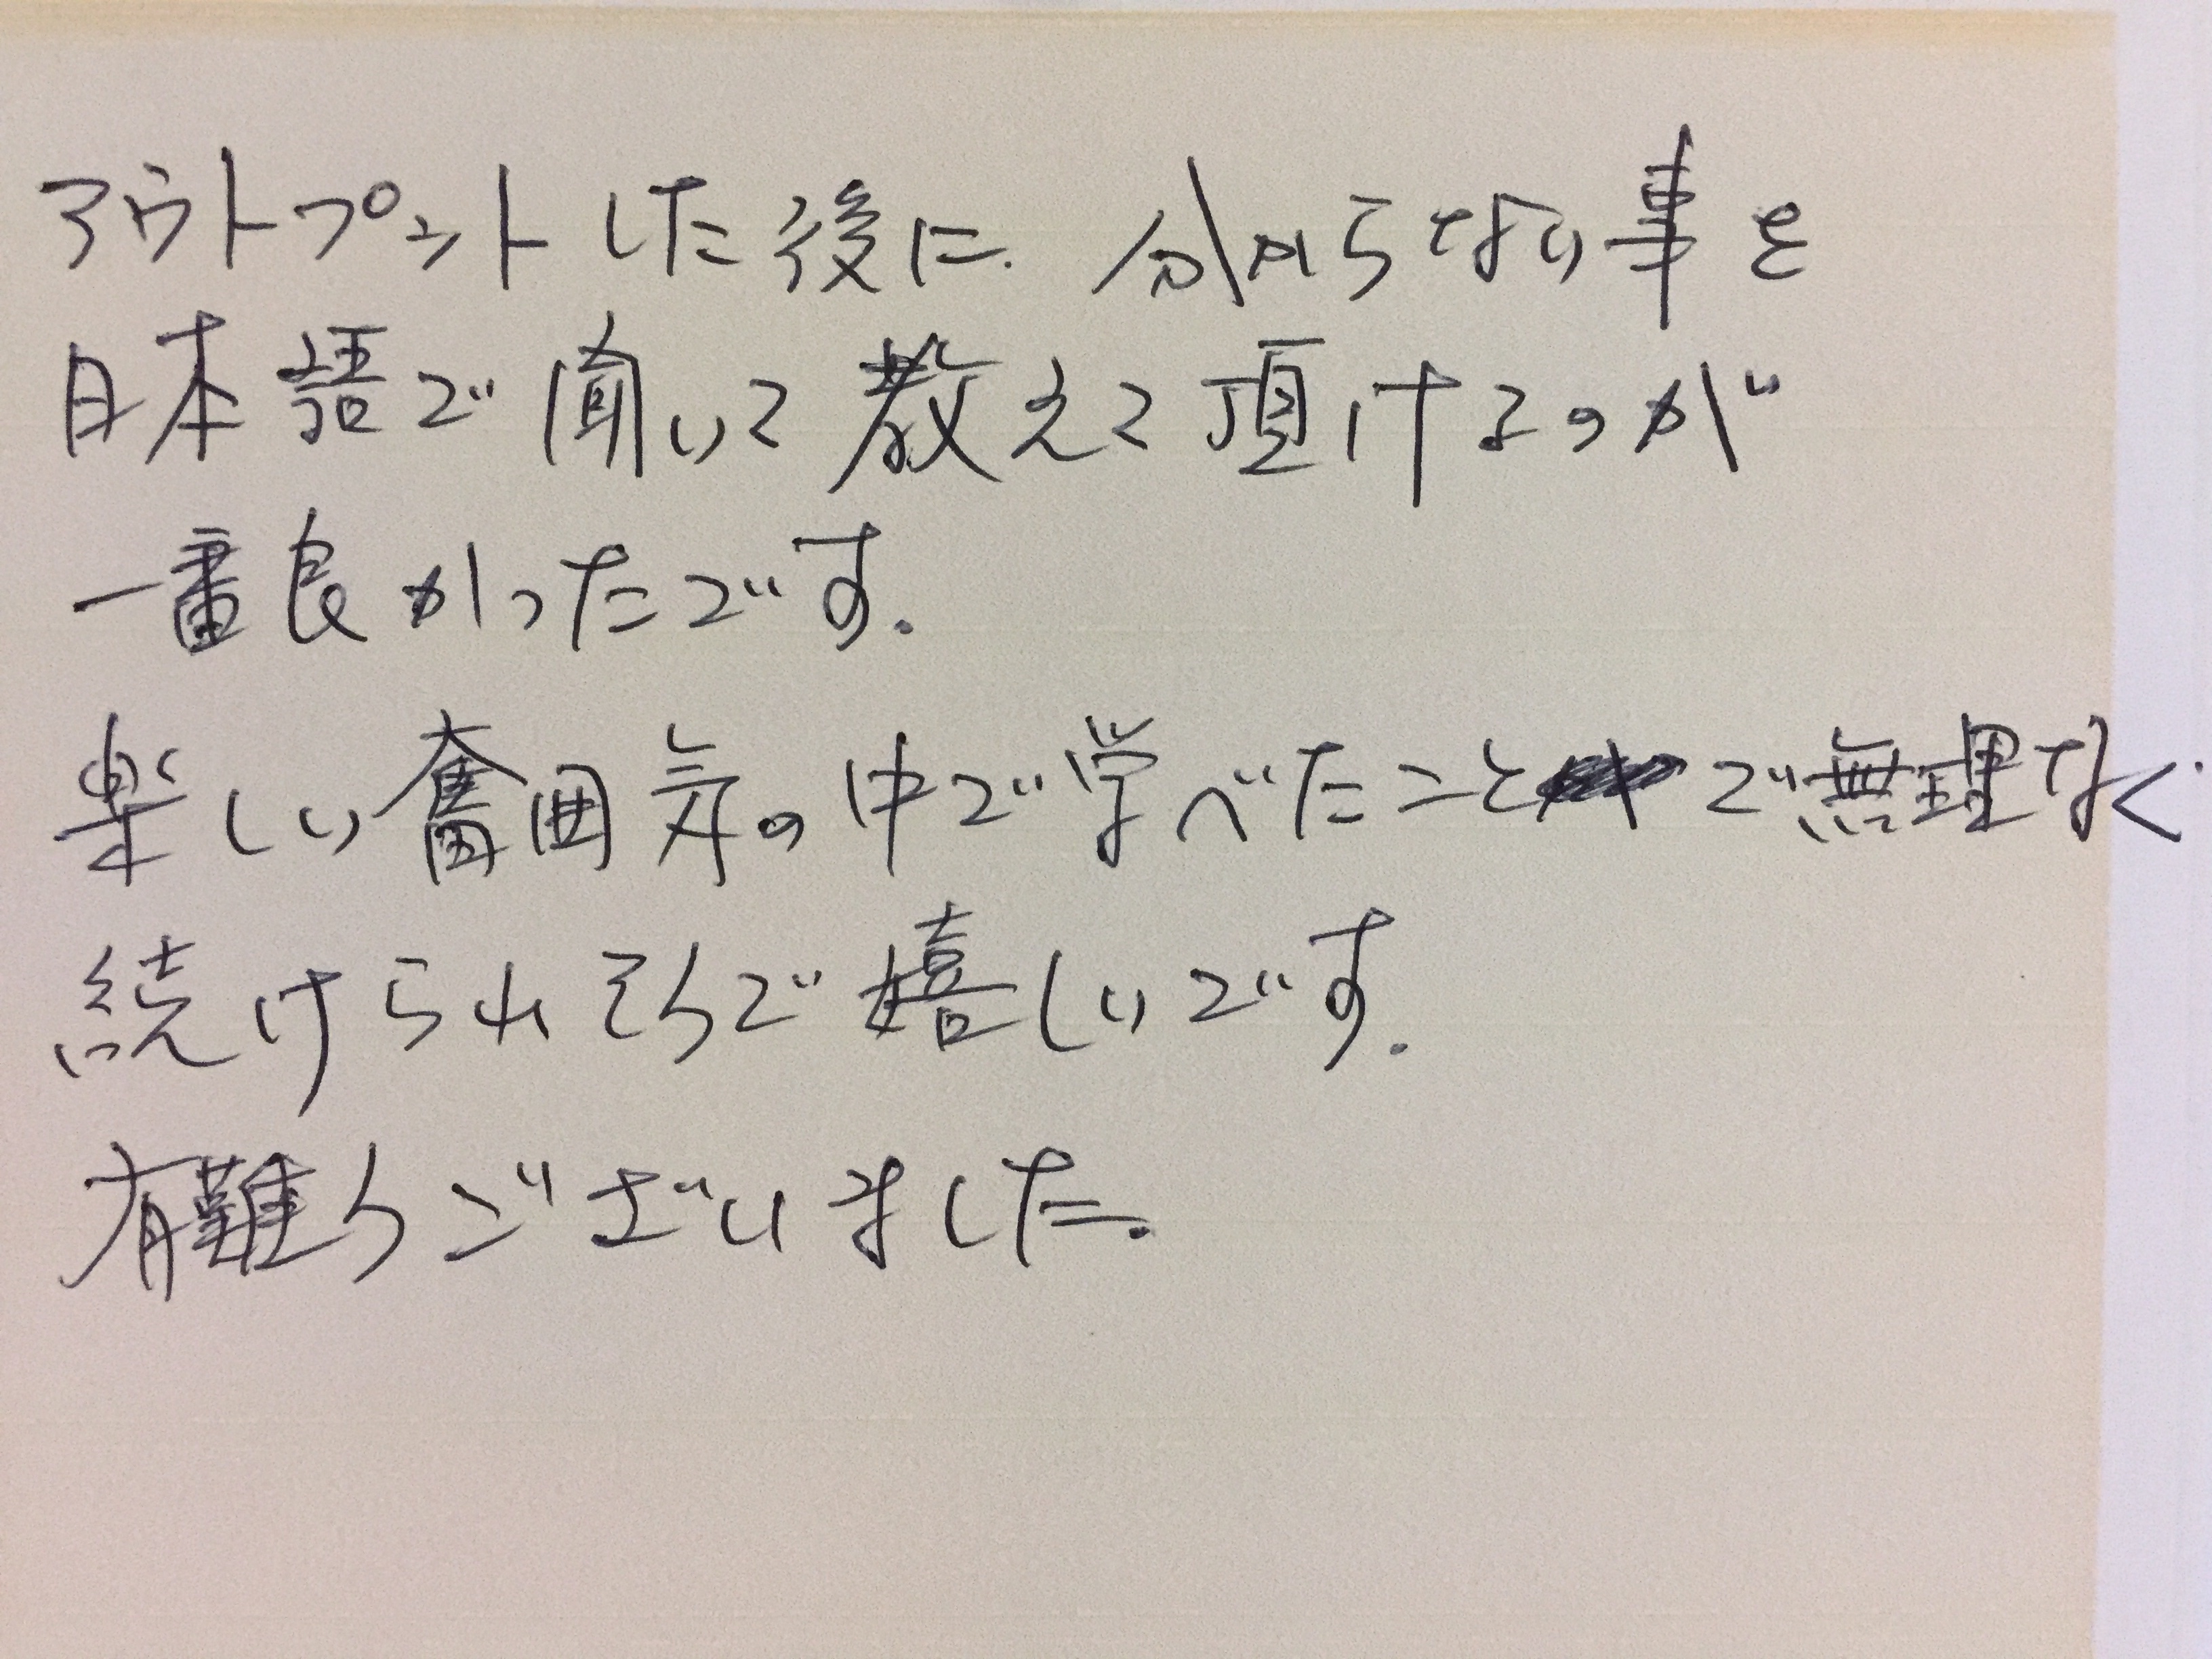 アウトプットした後に、分からない事を
日本語で聞いて教えて頂けるのが
一番良かったです。
楽しい奮囲気の中で学べたことで無理なく
続けられそうで嬉しいです。
有難うございました。